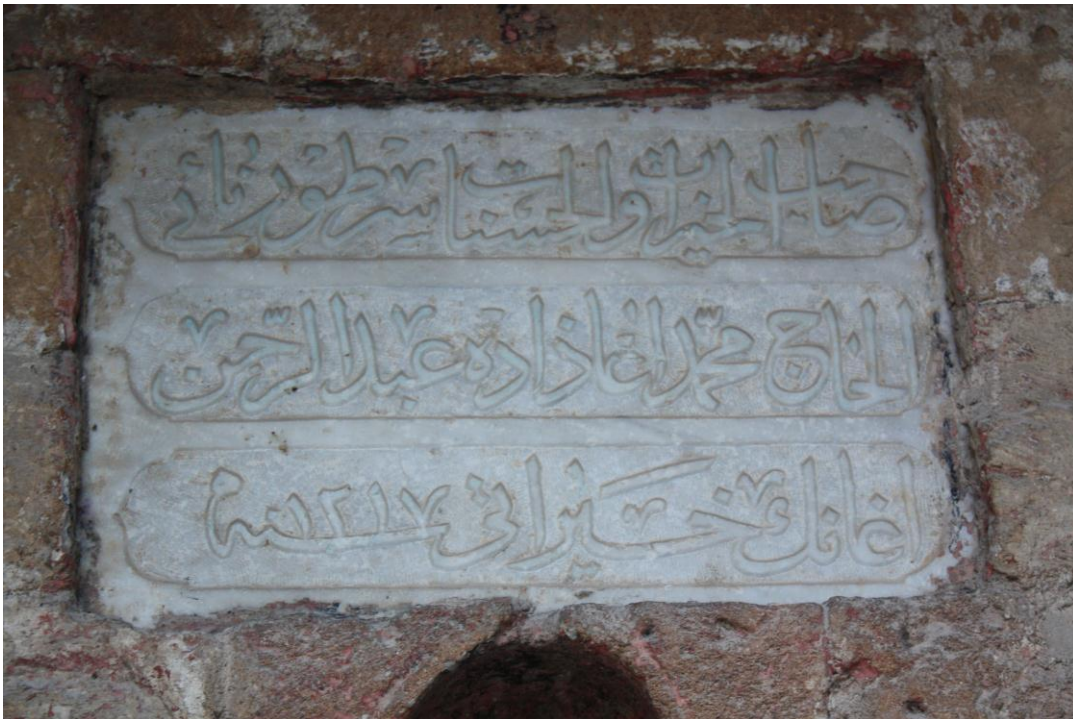 صاحب الخيرات والحسنات سر طورنائى
الحاج محمد اغا زاده عبد الرحمن
اغانك خيراتى سنه ١٢١٧ م